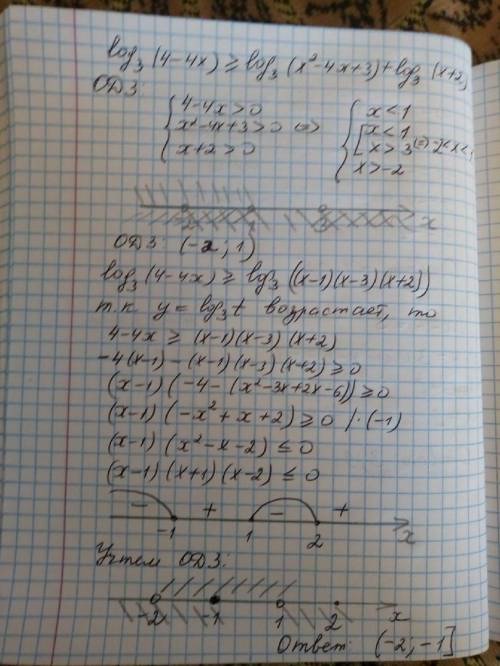 log₃(4-4x) ≥ log₃(x²-4x+3)+log₃(x+2)
ОДЗ:
{ 4-4x>0 { x<1
{ x²-4x+3>0 ⇔ { [ x<1
{ x+2>0 { [ x>3 ⇔ -2<x<1
{ x>-2
-2 1 3 x
ОДЗ: (-2; 1)
log₃(4-4x) ≥ log₃((x-1)(x-3)(x+2))
т.к y = log₃t возрастает, то
4-4x ≥ (x-1)(x-3)(x+2)
-4(x-1)-(x-1)(x-3)(x+2) ≥ 0
(x-1)(-4-(x²-3x+2x-6)) ≥ 0
(x-1)(-x²+x+2) ≥ 0 /·(-1)
(x-1)(x²-x-2) ≤ 0
(x-1)(x+1)(x-2) ≤ 0
- + - +
-1 1 2 x
Учтем ОДЗ:
-2 -1 1 2 x
Ответ: (-2; -1]